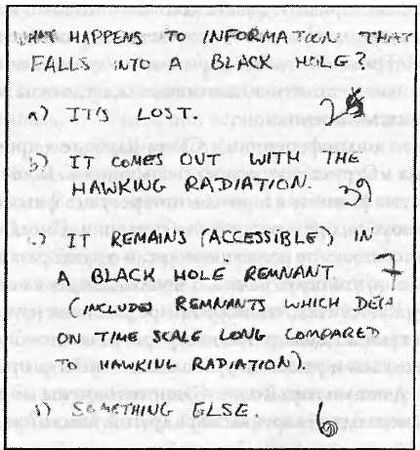 WHAT HAPPENS TO INFORMATION THAT
FALLS INTO A BLACK HOLE?
a) IT'S LOST.
b) IT COMES OUT WITH THE
HAWKING RADIATION. 39
c) IT REMAINS (ACCESSIBLE) IN
A BLACK HOLE REMNANT 7
(INCLUDES REMNANTS WHICH
ON TIME SCALE LONG COMPARED
TO HAWKING RADIATION).
d) SOMETHING ELSE. 6